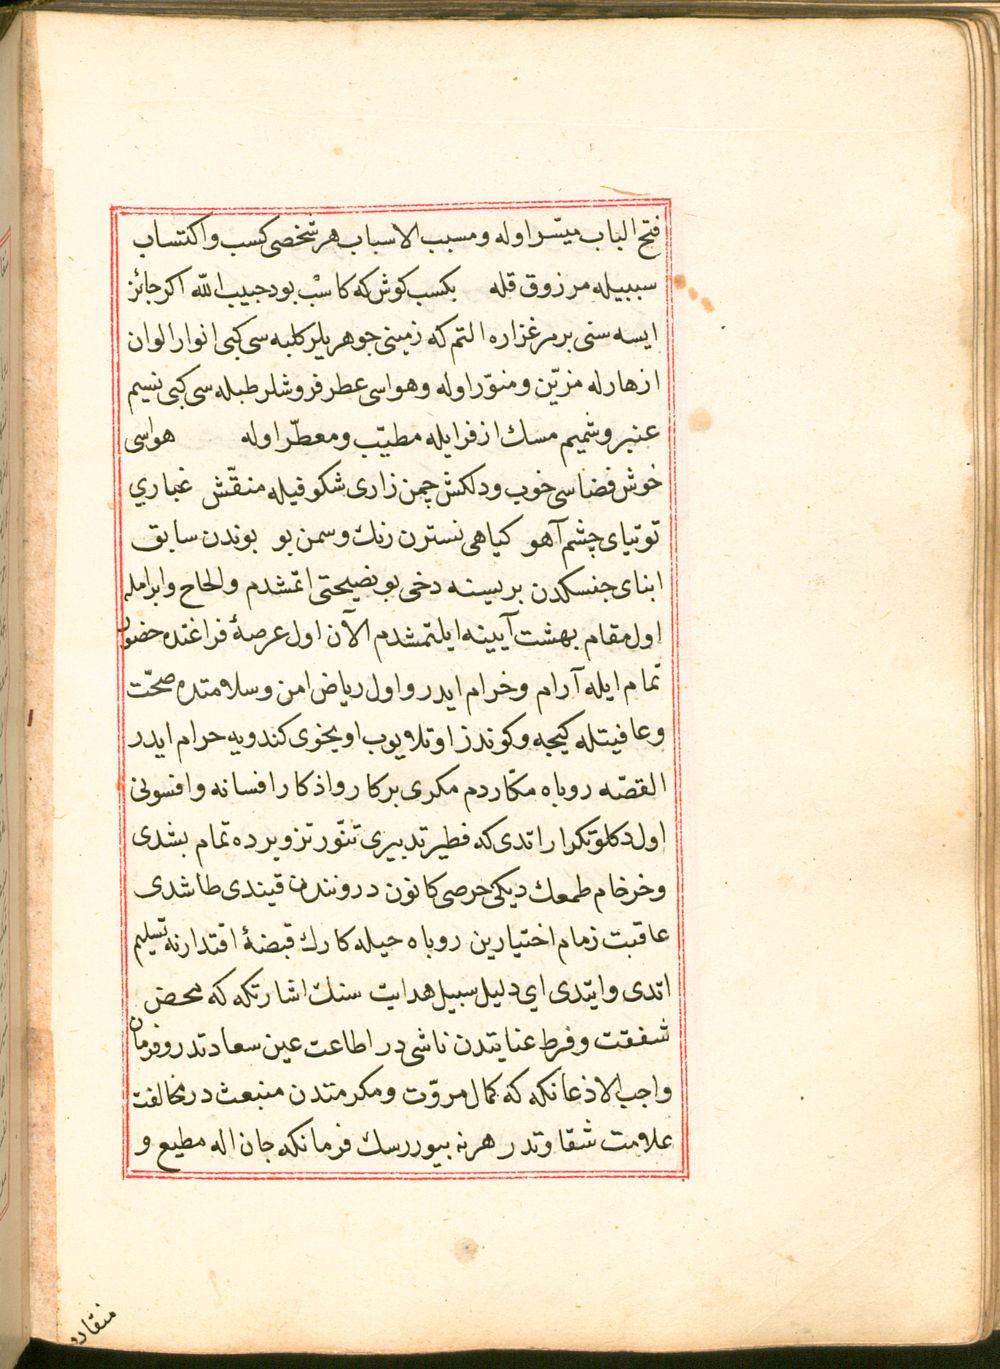 فتح الباب ميسّر اوله ومسبب الاسباب هر شخصی كسب و اكتساب
سببيله مرزوق قله بكسب كوش كه كاسْب بود حبيب اللّه اكر جائز
ايسه سنی بر مرغزاره التم كه زمينی جوهريلر كلبه سی كبی انوار الوان
ازهارله مزيّن و منوّر اوله و هواسی عطر فروشلر طبله سی كبی نسيم
عنبر و شميم مسك ازفر ايله مطيّب و معطّر اوله هواسی
خوش فضاسی خوب و دلكش چمن زاری شكوفيله منقّش غباري
توتيای چشم آهو كياهی نسترن رنك و سمن بو بوندن سابق
ابنای جنسكدن بريسنه دخی بو نصيحتی اتمشدم والحاح و ابرامله
اول مقام بهشت آيينه ايلتمشدم الآن اول عرصهٔ فراغتده حضور
تمّام ايله آرام و خرام ايدر و اول رياض امن و سلامتده صحّت
و عافيتله كيجه و كوندز اوتلايوب اويخوی كندويه حرام ايدر
القصّه روباه مكّار دم مكری بر كارواذكار افسانه و افسونی
اول دكلو تكرار اتدی كه فطير تدبيری تنّور تزويرده تمّام بشدی
و خر خام طمعك ديكی حرصی كانون دروننده قيندی طاشدی
عاقبت زمام اختيارين روباه حيله كارك قبضهٔ اقتدارنه تسليم
اتدی و ايتدی ای دليل سبيل هدايت سنك اشارتكه كه محض
شفقت و فرط عنايتدن ناشی در اطاعت عين سعادتدر و فرمان
واجب الاذعانكه كه كمال مروّت و مكرمتدن منبعث در مخالفت
علامت شقاوتدر هر نه بيوررسك فرمانكه جان اله مطيع و
منقاد